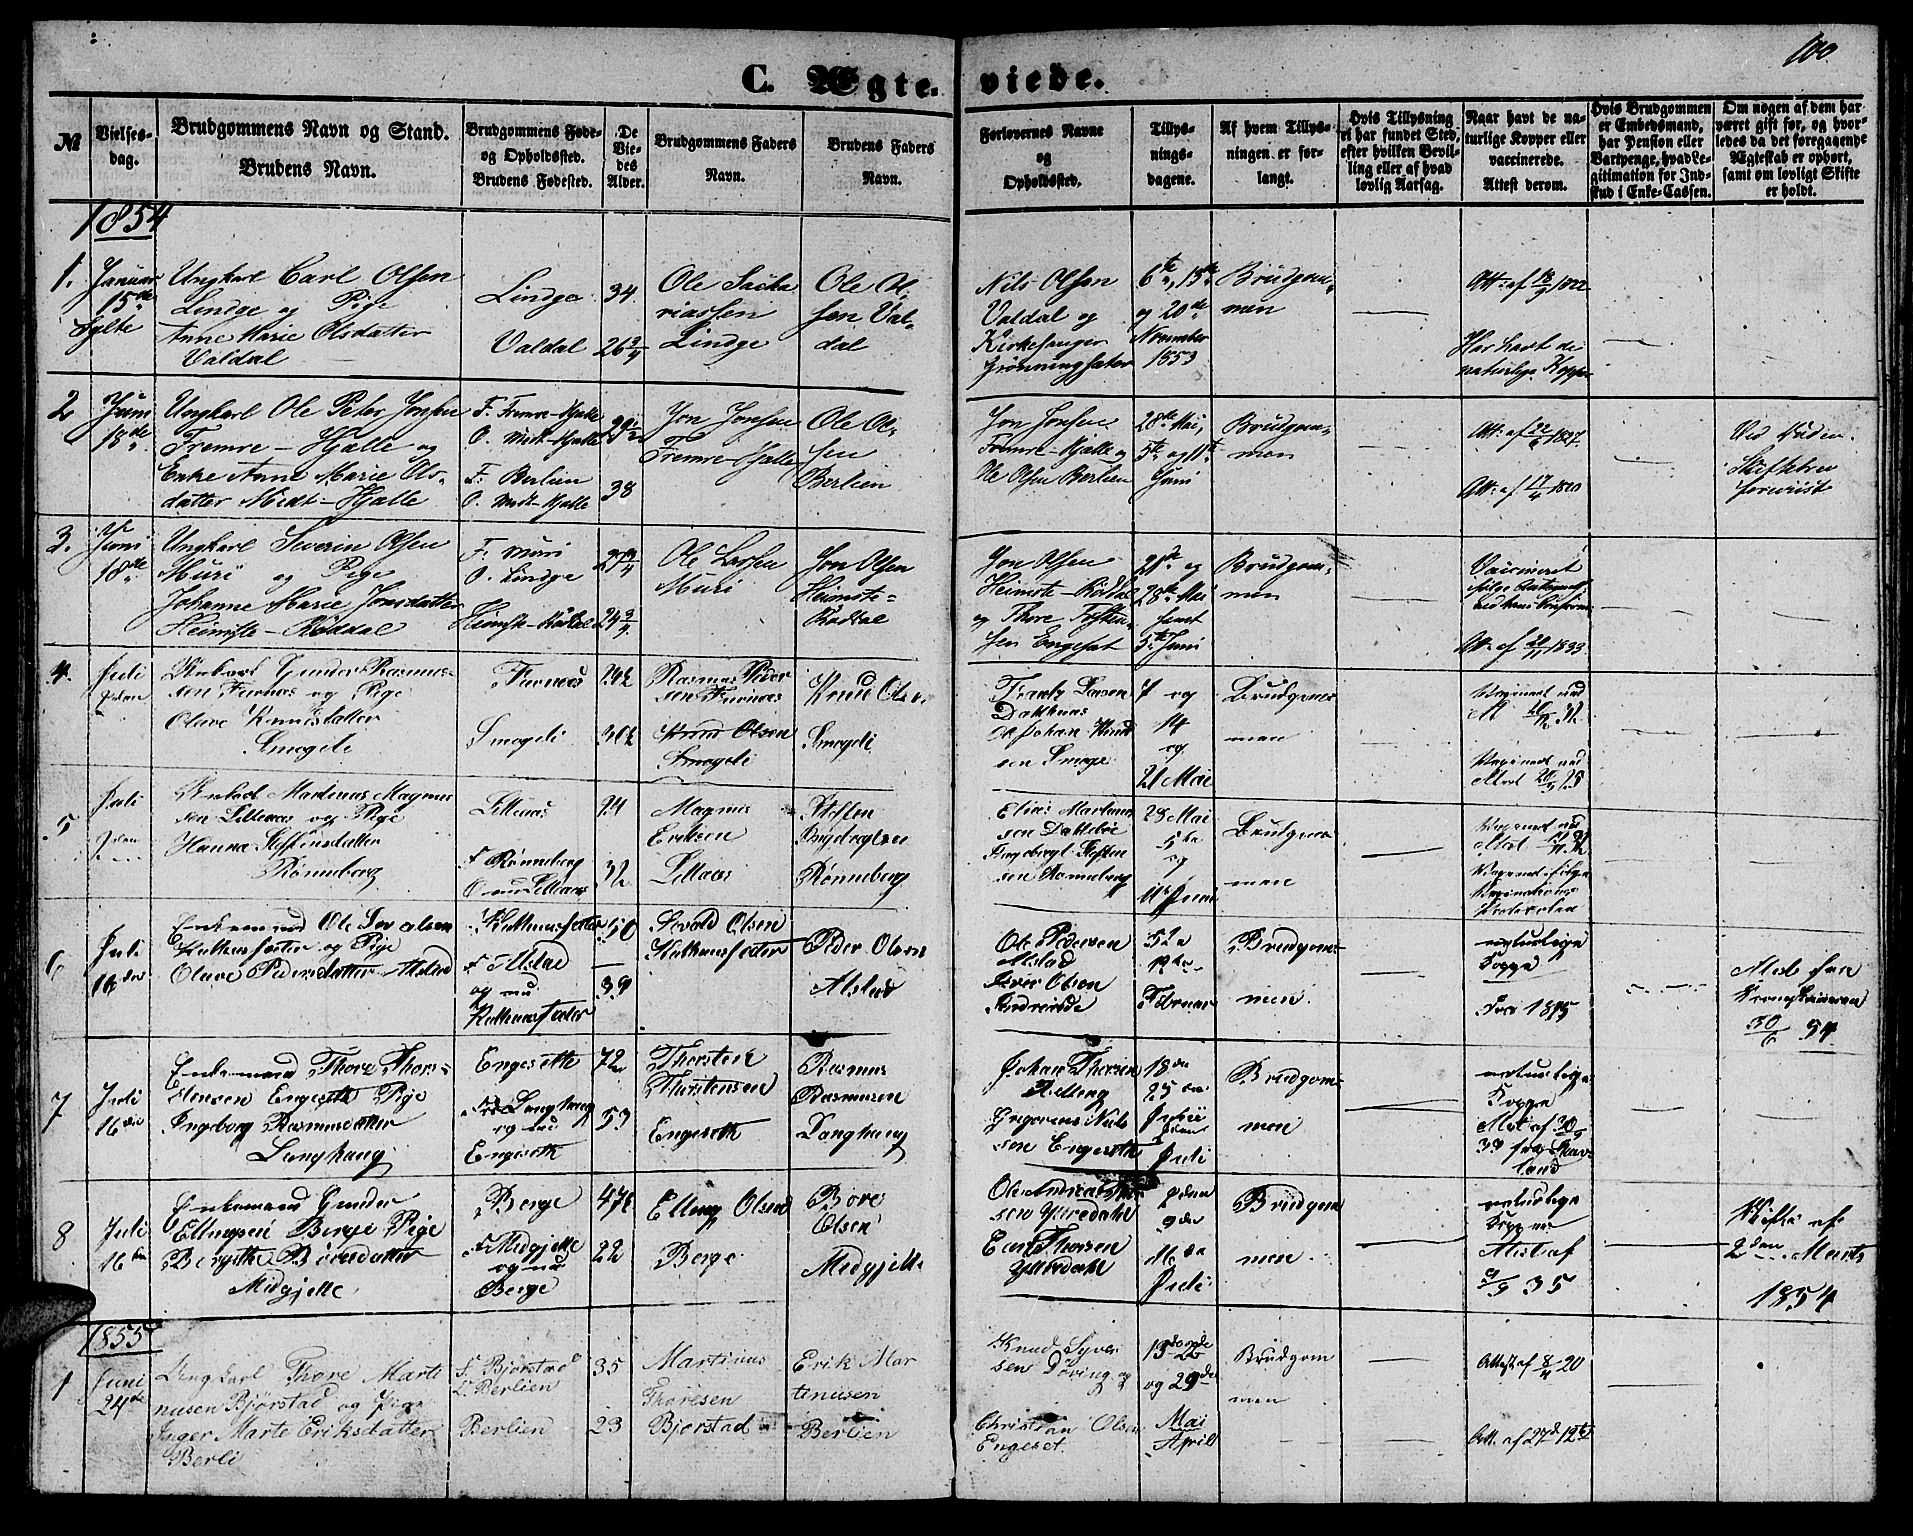 100.
C. Ægte-
viede.
№
Vielses-
dag.
Brudgommens Navn og Stand.
Brudens Navn.
Brudgommens Føde-
og Opholdssted.
Brudens Fødested.
De
Vie-
des
Alder.
Brudgommens Faders
Navn.
Brudens Faders
Navn.
Forlovernes Navne
og
Opholdssted.
Tillys-
nings-
dagene.
Af hvem Tillys-
ningen er for-
langt.
Hvis Tillysning
ei har fundet Sted,
efter hvilken Bevil-
ling eller af hvad
lovlig Aarsag.
Naar havt de na-
turlige Kopper eller
vaccinerede.
Attest derom.
Hvis Brudgommen
er Embedsmand,
har Pension eller
Vartpenge, hvad Le-
gitimation for Ind-
skud i Enke-Cassen.
Om nogen af dem har
været gift før, og hvor-
ledes da det foregaaende
Ægteskab er ophørt,
samt om lovligt Skifte
er holdt.
1854
1.
Januar
15de
Sylte
Ungkarl Carl Olsen
Lindge og Pige
Anne Marie Olsdatter
Valdal
Lindge
Valdal
34
26 3/4
Ole Sacha
riassen
Lindge
Ole Ol-
sen Val-
dal
Nils Olsen
Valdal og
Kirkesanger
Grönningsæter
6te, 13de
og 20de
November
1853
Brudgom-
men
Att. af 18/9 1822
Har havt de
naturlige Kopper
2
Juni
18de
Ungkarl Ole Peter Jonsen
Fremre-Hjalle og
Enke Anne Marie Ols-
datter Midt-Hjalle
F. Fremre-Hjalle
O. Midt-Hjalle
F. Berlien
O. Midt-Hjalle
29 1/2
38
Jon Jonsen
Fremre-Hjalle
Ole Ol-
sen
Berlien
Jon Jonsen
Fremre-Hjalle og
Ole Olsen Berlien
28de Mai,
5te og 11te
Juni
Brudgom-
men
Att. af 1827
Att. af 17/4 1820
Ved
Skiftebrev
forevist
3.
Juni
18de
Ungkarl Severin Olsen
Muri og Pige
Johanne Marie Jonsdatter
Heimste-Röddal
F. Muri
O. Lindge
Heimste-Rödal
27 3/4
24 3/4
Ole Larsen
Muri
Jon Olsen
Heimste-
Rödal
Jon Olsen
Heimste-Röddal
og Thore Tosten-
sen Engeset
21de og
28de Mai
samt
5te Juni
Brudgom-
men
Vaccineret
ifølge
Att. af 1833
4.
Juli
2den
Gunder Rasmus-
sen Furnæs og Pige
Olave Knudsdatter
Smogeli
Furnæs
Smogeli
24 1/2
30 1/2
Rasmus Peder
sen Furnæs
Knud Olsen
Smogeli
Knud Olsen
Smogeli
Larsen
Johan Knud
sen Smoge
7 og
14
og
21 Mai
Brudgom-
men
5
Juli
2den
Martinus Magnus
sen Lillenæs og Pige
Hanna Steffensdatter
Rønneberg
Lillenæs
F Rønneberg
24
32
Magnus
Eriksen
Lillenæs
Steffen
Rønneberg
Elias Martinus
sen
Ingebrigt Steffen
sen Rønneberg
28 Mai
5te
og
11te Juni
Brudgom-
men
6
Juli
16de
Enkemand Ole Sevaldsen
og Pige
Olave Pedersdatter Alstad
F Alstad
og nu
50
39
Sevald Olsen
Peder Olsen
Alstad
Ole Pedersen
Alstad
Olsen
5te
12te
Februar
Brudgom-
men.
naturlige
Koppe
Før 1815
Attest fra
30/6 54
7
Juli
16de
Enkemand Thore Thors-
tensen Engeseth Pige
Ingeborg Rasmusdatter
Langhaug
Engeseth
F Langhaug
og nu
Engeseth
72
53
Thorsten
Thorstensen
Engeseth
Rasmus
Rasmussen
Langhaug
Johan Thorsen
Gregorius Nils
sen Engeseth
18de
25de
Juni
2den
Juli
Brudgom-
men
naturlige
Koppe
Attest af 30/9
39 fra
8
Juli
16de
Enkemand Gunder
Ellingsen Berge Pige
Bergithe Børesdatter
Midgjelle
Berge
F Midgjelle
og nu
Berge
47 1/2
22
Elling Olsen
Berge
Børe
Olsen
Midgjelle
Ole Andreas
sen Yttredahl
Thorsen
Yttredahl
2den
9de
16de
Juli
Brudgom
men
naturlige
Kopper
Attest af
9/9 35
Skifte af
2den Marts
1854
1855
1
Juni
24de
Ungkarl Thore Marti
nusen Bjørstad og Pige
Inger Marte Eriksdatter
Berli
F. Bjørstad
O. Berlien
Berlien
35
23
Martinus
Thoresen
Bjørstad
Erik Mar
tinusen
Berlien
Knud Syver
sen Døving og
Christian Olsen
Engeset.
13de
og 29de
Mai
April
Brudgom
men
Attest af 8/4 20
Att. af